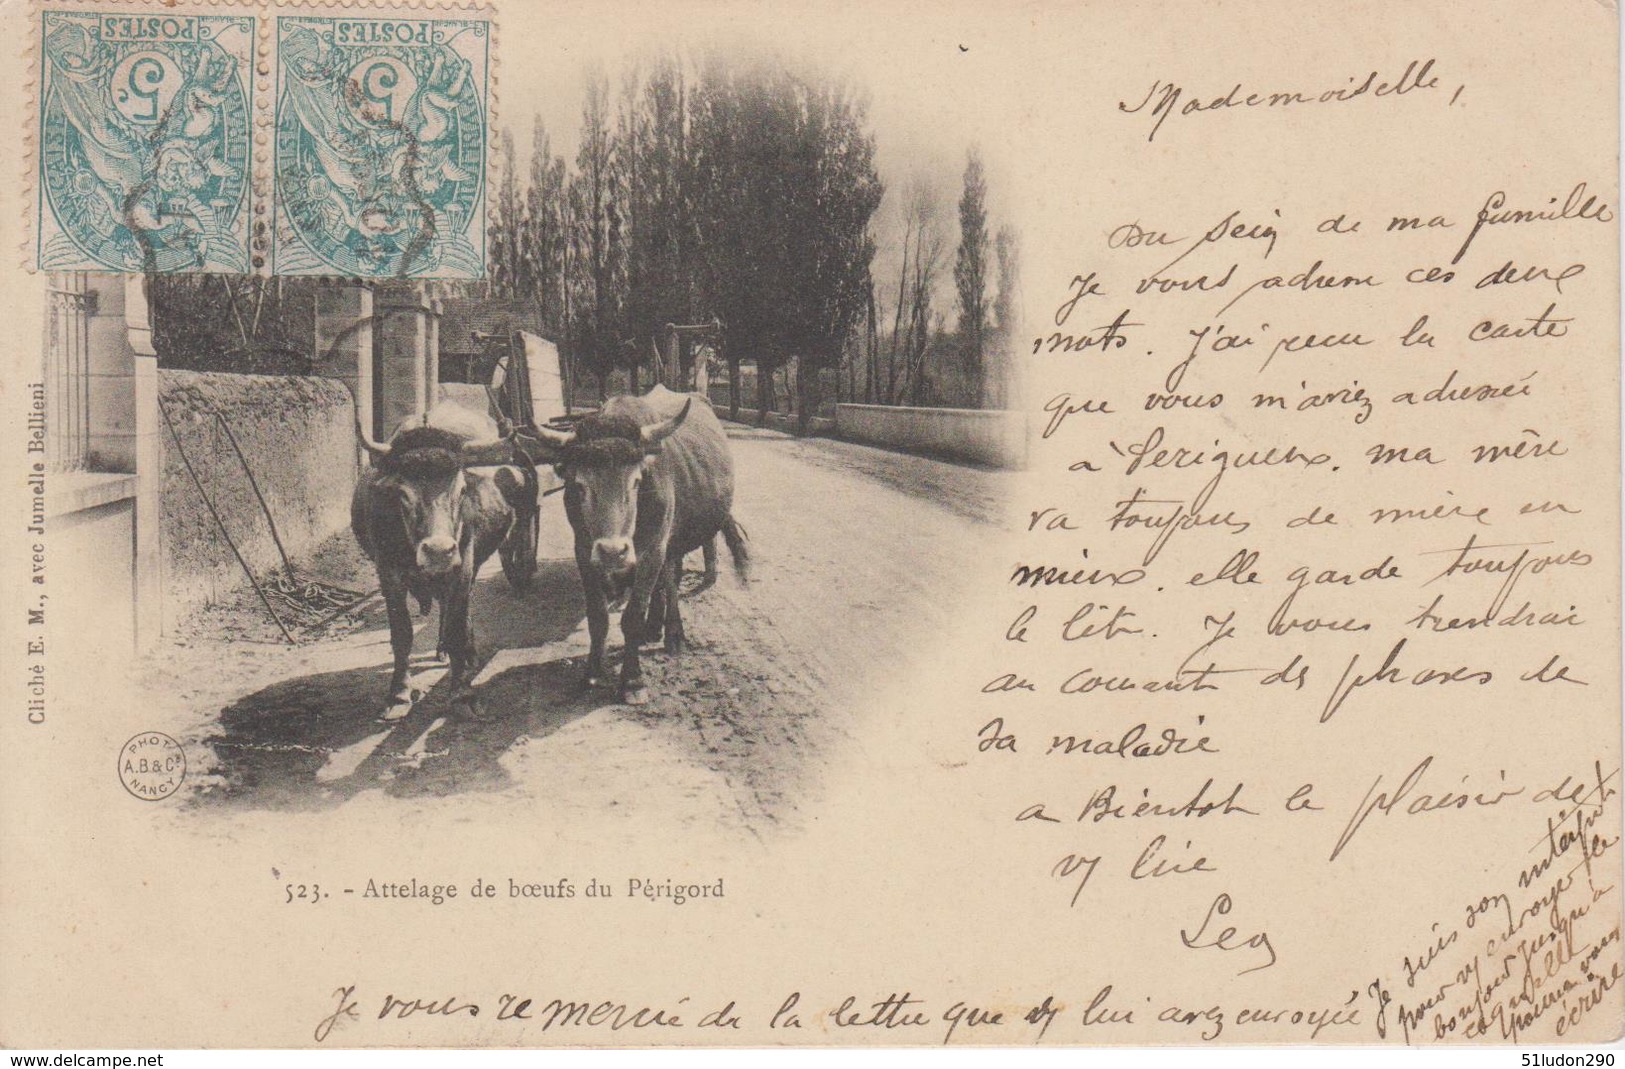 POSTES
POSTES
5c
5c
Mademoiselle,
Du sein de ma famille
Je vous adresse ces deux
mots. J'ai reçu la carte
que vous m'aviez adressée
à Perigueux. ma mère
va toujours de mieux en
mieux. elle garde toujours
le lit. Je vous tiendrai
au courant des phases de
sa maladie
a Bientot le plaisir de
vs lire
Leon
Je vous remercie de la lettre que vs lui avez envoyée
Je suis son interprète
pour vs envoyer le
bonjour jusqu'à
ce qu'elle
puisse vous
écrire
Cliché E. M., avec Jumelle Bellieni
PHOT.
A.B.& Cie
NANCY
523. - Attelage de bœufs du Périgord
51ludon290